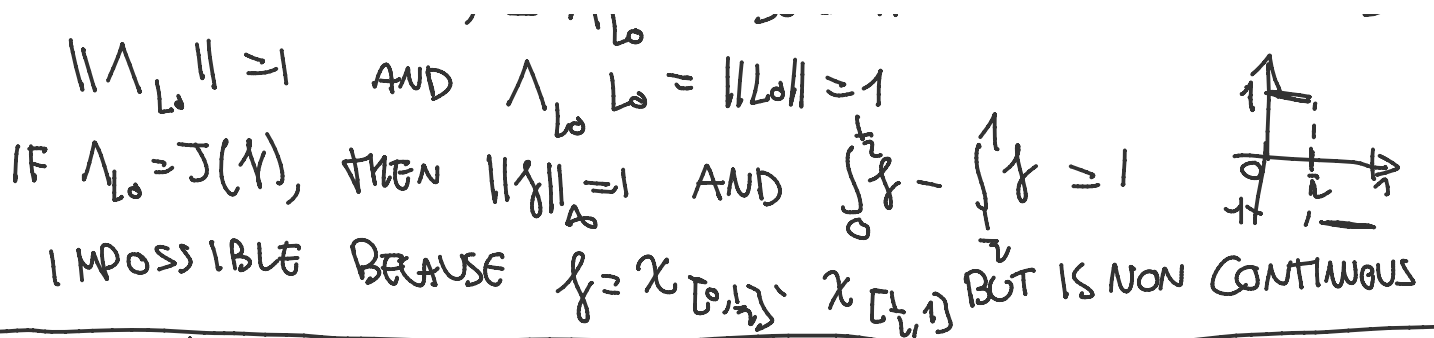 ‖Λ_{L₀}‖ = 1 AND Λ_{L₀} L₀ = ‖L₀‖ = 1
IF Λ_{L₀} = J(f), THEN ‖f‖_∞ = 1 AND ∫_0^{1/2} f - ∫_{1/2}^1 f = 1
IMPOSSIBLE BECAUSE f = χ_{[0,1/2]} - χ_{[1/2,1]} BUT IS NON CONTINUOUS
1
0 1/2 1
-1